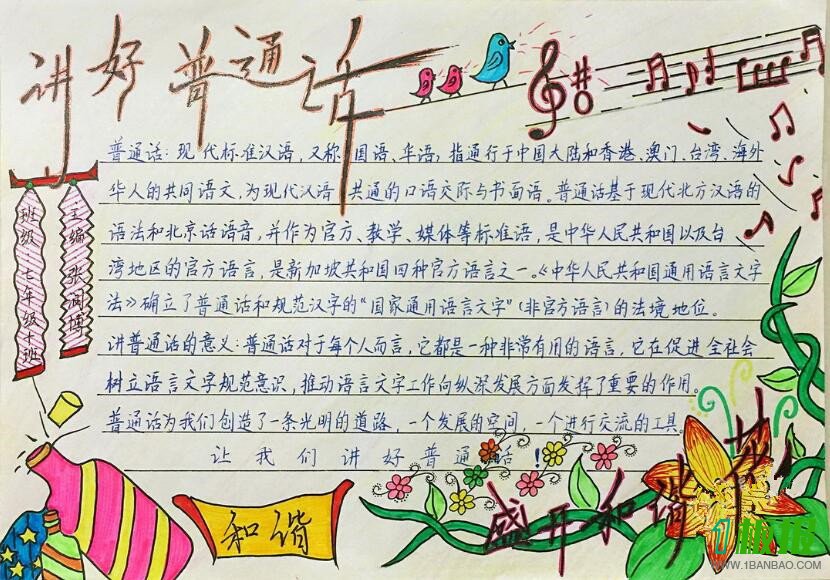 讲好普通话
普通话：现代标准汉语，又称国语、华语，指通行于中国大陆和香港、澳门、台湾、海外
华人的共同语文，为现代汉语共通的口语交际与书面语。普通话基于现代北方汉语的
语法和北京话语音，并作为官方、教学、媒体等标准语，是中华人民共和国以及台
湾地区的官方语言，是新加坡共和国四种官方语言之一。《中华人民共和国通用语言文字
法》确立了普通话和规范汉字的“国家通用语言文字”（非官方语言）的法境地位。
讲普通话的意义：普通话对于每个人而言，它都是一种非常有用的语言，它在促进全社会
树立语言文字规范意识，推动语言文字工作向纵深发展方面发挥了重要的作用。
普通话为我们创造了一条光明的道路，一个发展的空间，一个进行交流的工具。
让我们讲好普通话！
班级 七年级十班
主编 张润博
和谐
盛开和谐花
板报
WWW.1BANBAO.COM